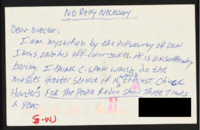 NO REPLY NECESSARY
Dear Director:
I am mystified by the popularity of Don
Imus, and his off-color jokes. He is insufferably
boring. I think C-SPAN would do the
masses greater service if it would broadcast Chuck
Harder's For the People Radio Show three times
a year.